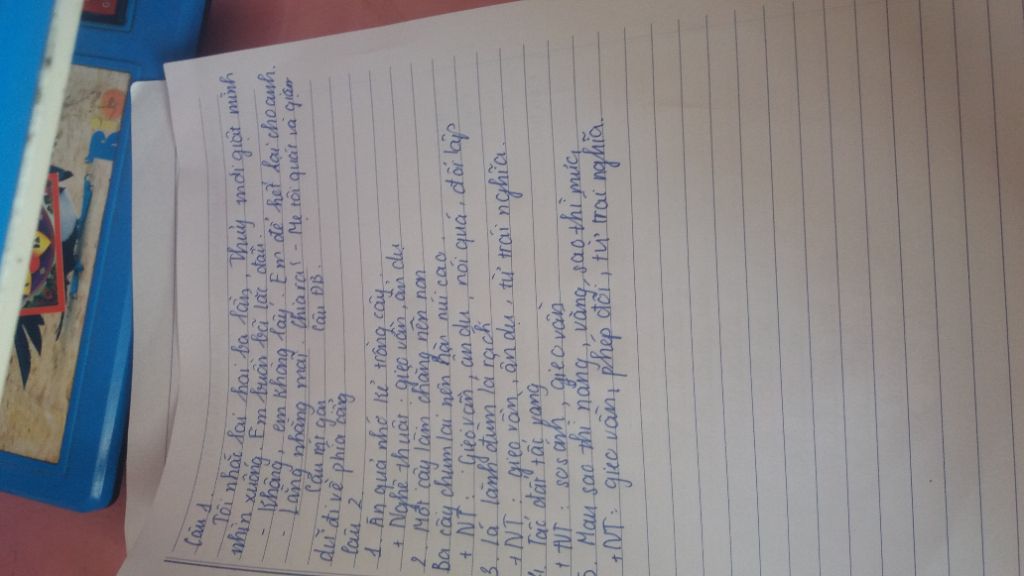 Câu 1
Tôi nhắc lại hai ba lần, Thủy mới giật mình
nhìn xuống. Em buồn bã lắc đầu:
- Không, em không lấy. Em để hết lại cho anh.
- Lằng nhằng mãi. Chia ra! - Mẹ tôi quát và giận
Câu mở gọn Câu ĐB.
dữ đi về phía cổng
Câu 2
1. Ăn quả nhớ kẻ trồng cây.
+ Nghệ thuật: gieo vần, ẩn dụ
2. Một cây làm chẳng nên non
Ba cây chụm lại nên hòn núi cao.
+ NT: Gieo vần, ẩn dụ, nói quá, đối lập
3. lá lành đùm lá rách
+ NT: gieo vần, ẩn dụ, từ trái nghĩa.
4. Tấc đất tấc vàng
+ NT: so sánh, gieo vần
5. Mau sao thì nắng, vắng sao thì mưa
+ NT: gieo vần, phép đối, từ trái nghĩa.